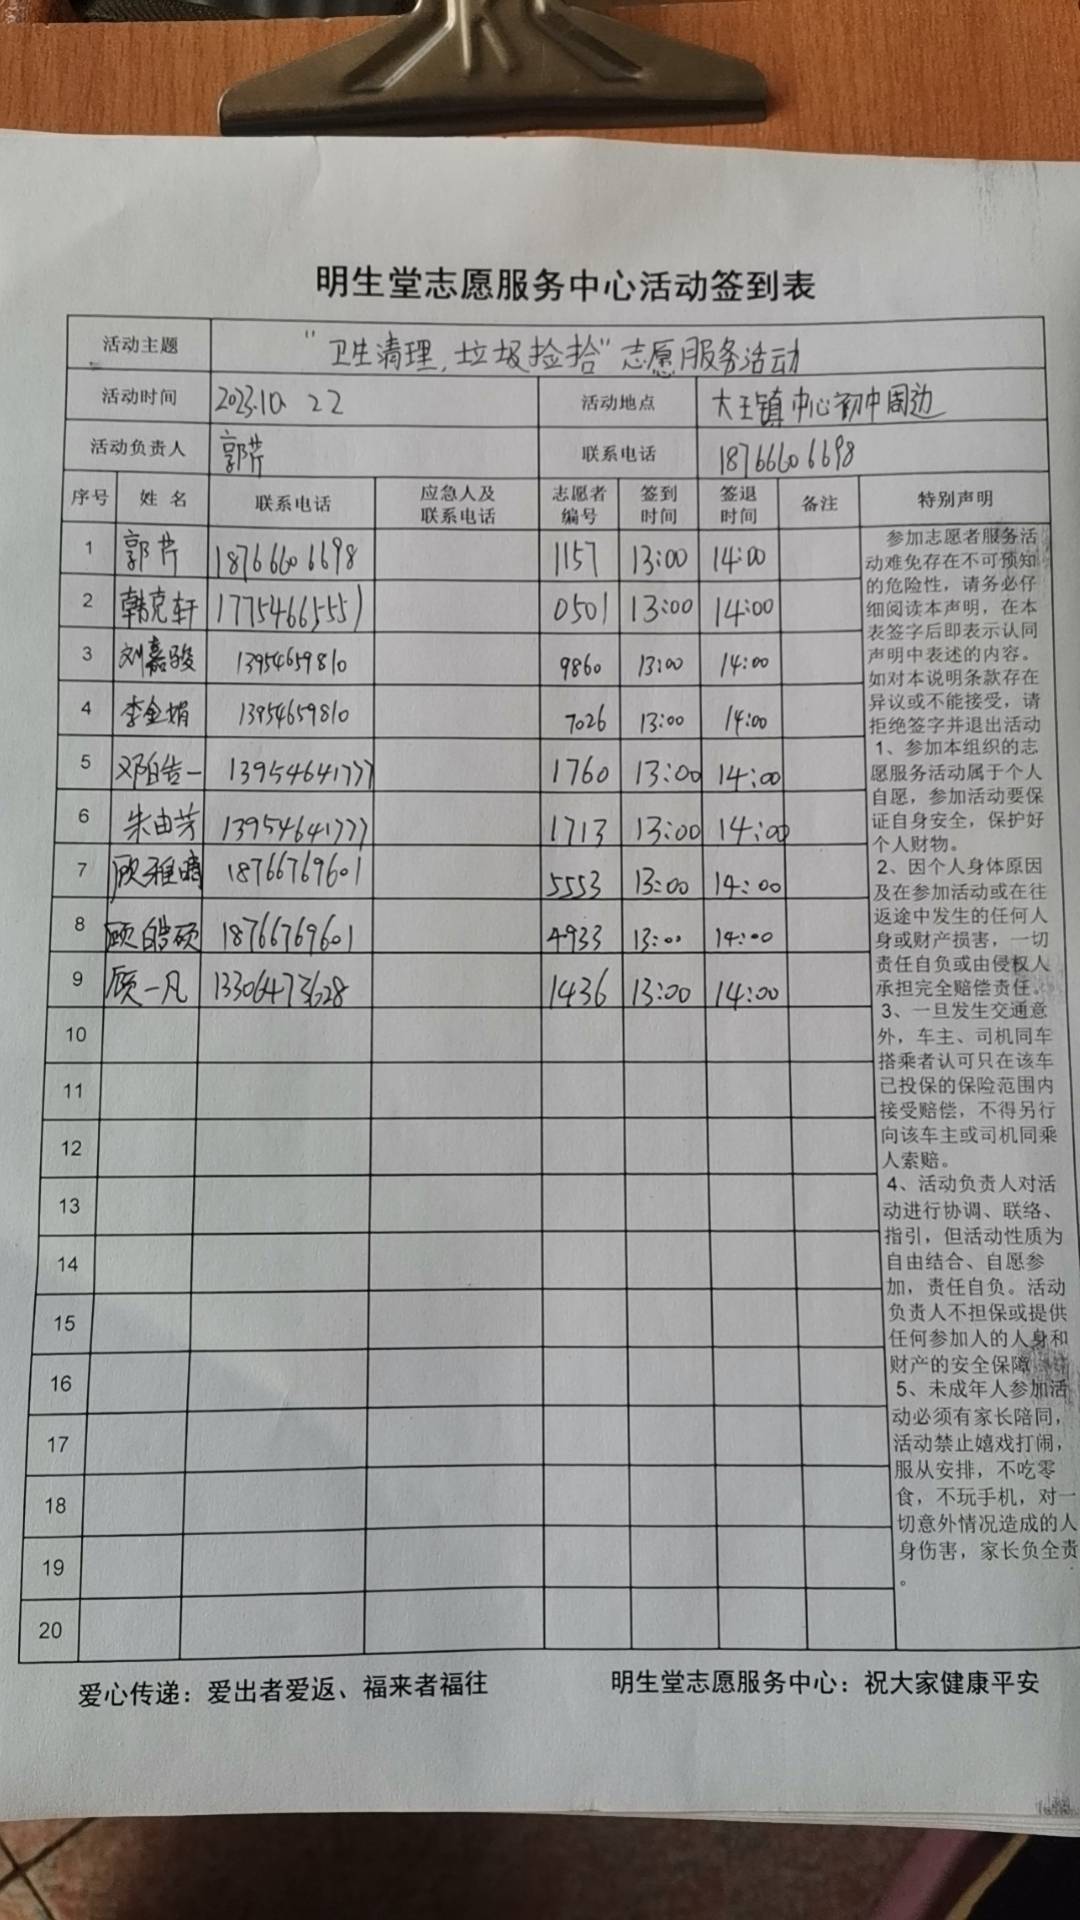 明生堂志愿服务中心活动签到表
活动主题 “卫生清理,垃圾捡拾”志愿服务活动
活动时间 2023.10.22 活动地点 大王镇中心初中周边
活动负责人 郭芹 联系电话 18766606698
序号 姓名 联系电话 应急人及联系电话 志愿者编号 签到时间 签退时间 备注 特别声明
1 郭芹 18766606698 1157 13:00 14:00
2 韩克轩 17754665551 0501 13:00 14:00
3 刘嘉骏 13954659810 9860 13:00 14:00
4 李金娟 13954659810 7026 13:00 14:00
5 邓皓一 13954641777 1760 13:00 14:00
6 朱由芳 13954641777 1713 13:00 14:00
7 顾雅晴 18766769601 5553 13:00 14:00
8 顾皓硕 18766769601 4933 13:00 14:00
9 顾一凡 13306473628 1436 13:00 14:00
10
11
12
13
14
15
16
17
18
19
20
参加志愿者服务活
动难免存在不可预知
的危险性，请务必仔
细阅读本声明，在本
表签字后即表示认同
声明中表述的内容。
如对本说明条款存在
异议或不能接受，请
拒绝签字并退出活动
1、参加本组织的志
愿服务活动属于个人
自愿，参加活动要保
证自身安全，保护好
个人财物。
2、因个人身体原因
及在参加活动或在往
返途中发生的任何人
身或财产损害，一切
责任自负或由侵权人
承担完全赔偿责任。
3、一旦发生交通意
外，车主、司机同车
搭乘者认可只在该车
已投保的保险范围内
接受赔偿，不得另行
向该车主或司机同乘
人索赔。
4、活动负责人对活
动进行协调、联络、
指引，但活动性质为
自由结合、自愿参
加，责任自负。活动
负责人不担保或提供
任何参加人的人身和
财产的安全保障
5、未成年人参加活
动必须有家长陪同，
活动禁止嬉戏打闹，
服从安排，不吃零
食，不玩手机，对一
切意外情况造成的人
身伤害，家长负全责
。
爱心传递：爱出者爱返、福来者福往 明生堂志愿服务中心：祝大家健康平安